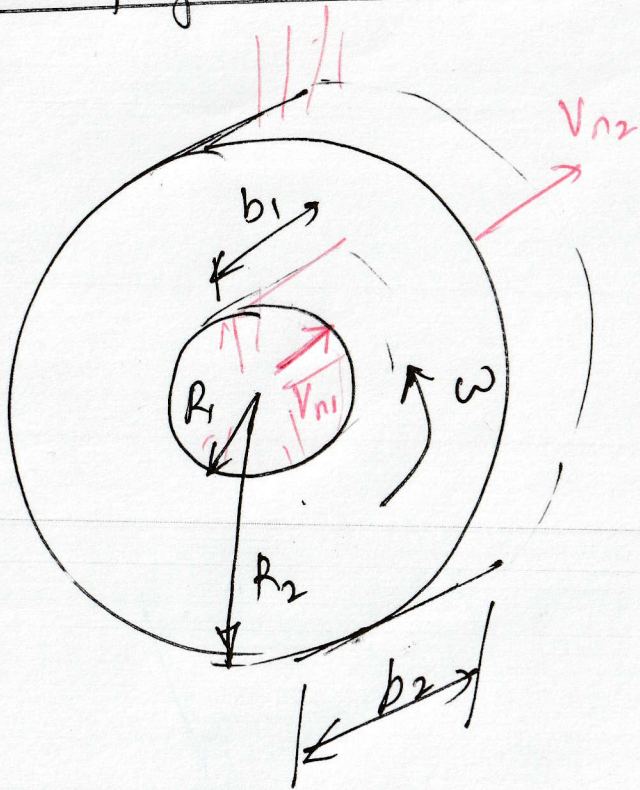 Vn2
b1
R1
Vn1
ω
R2
b2